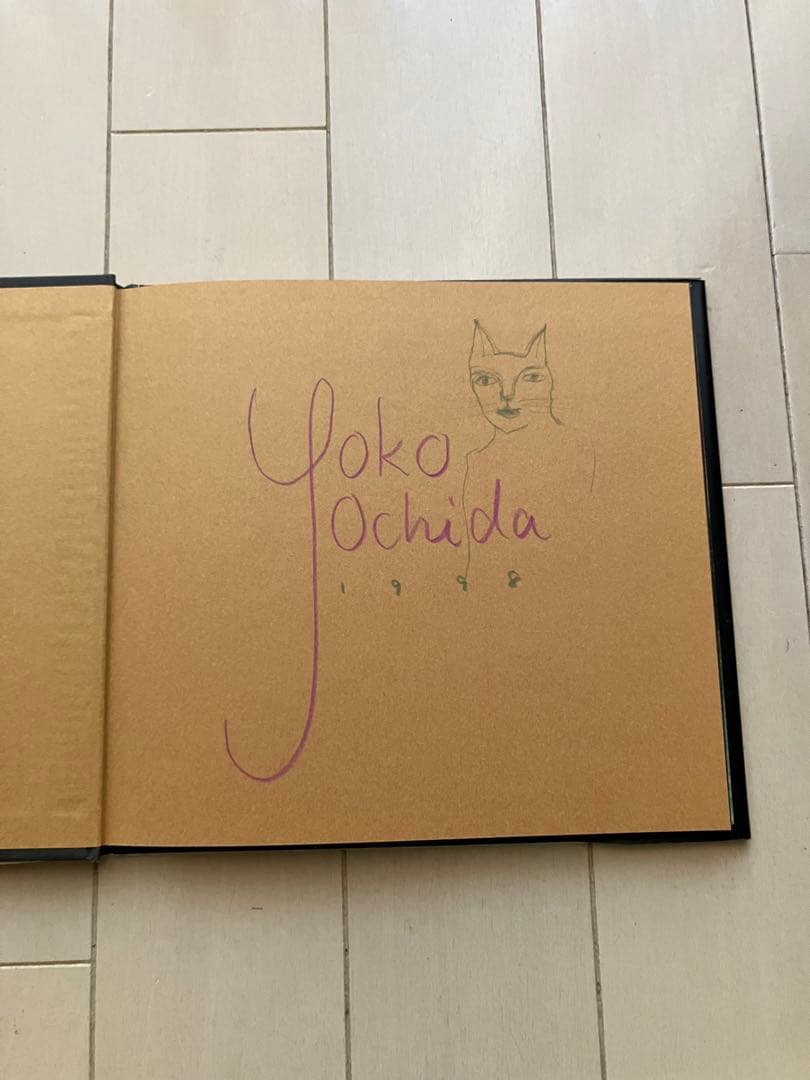 Yoko
Ochida
1998